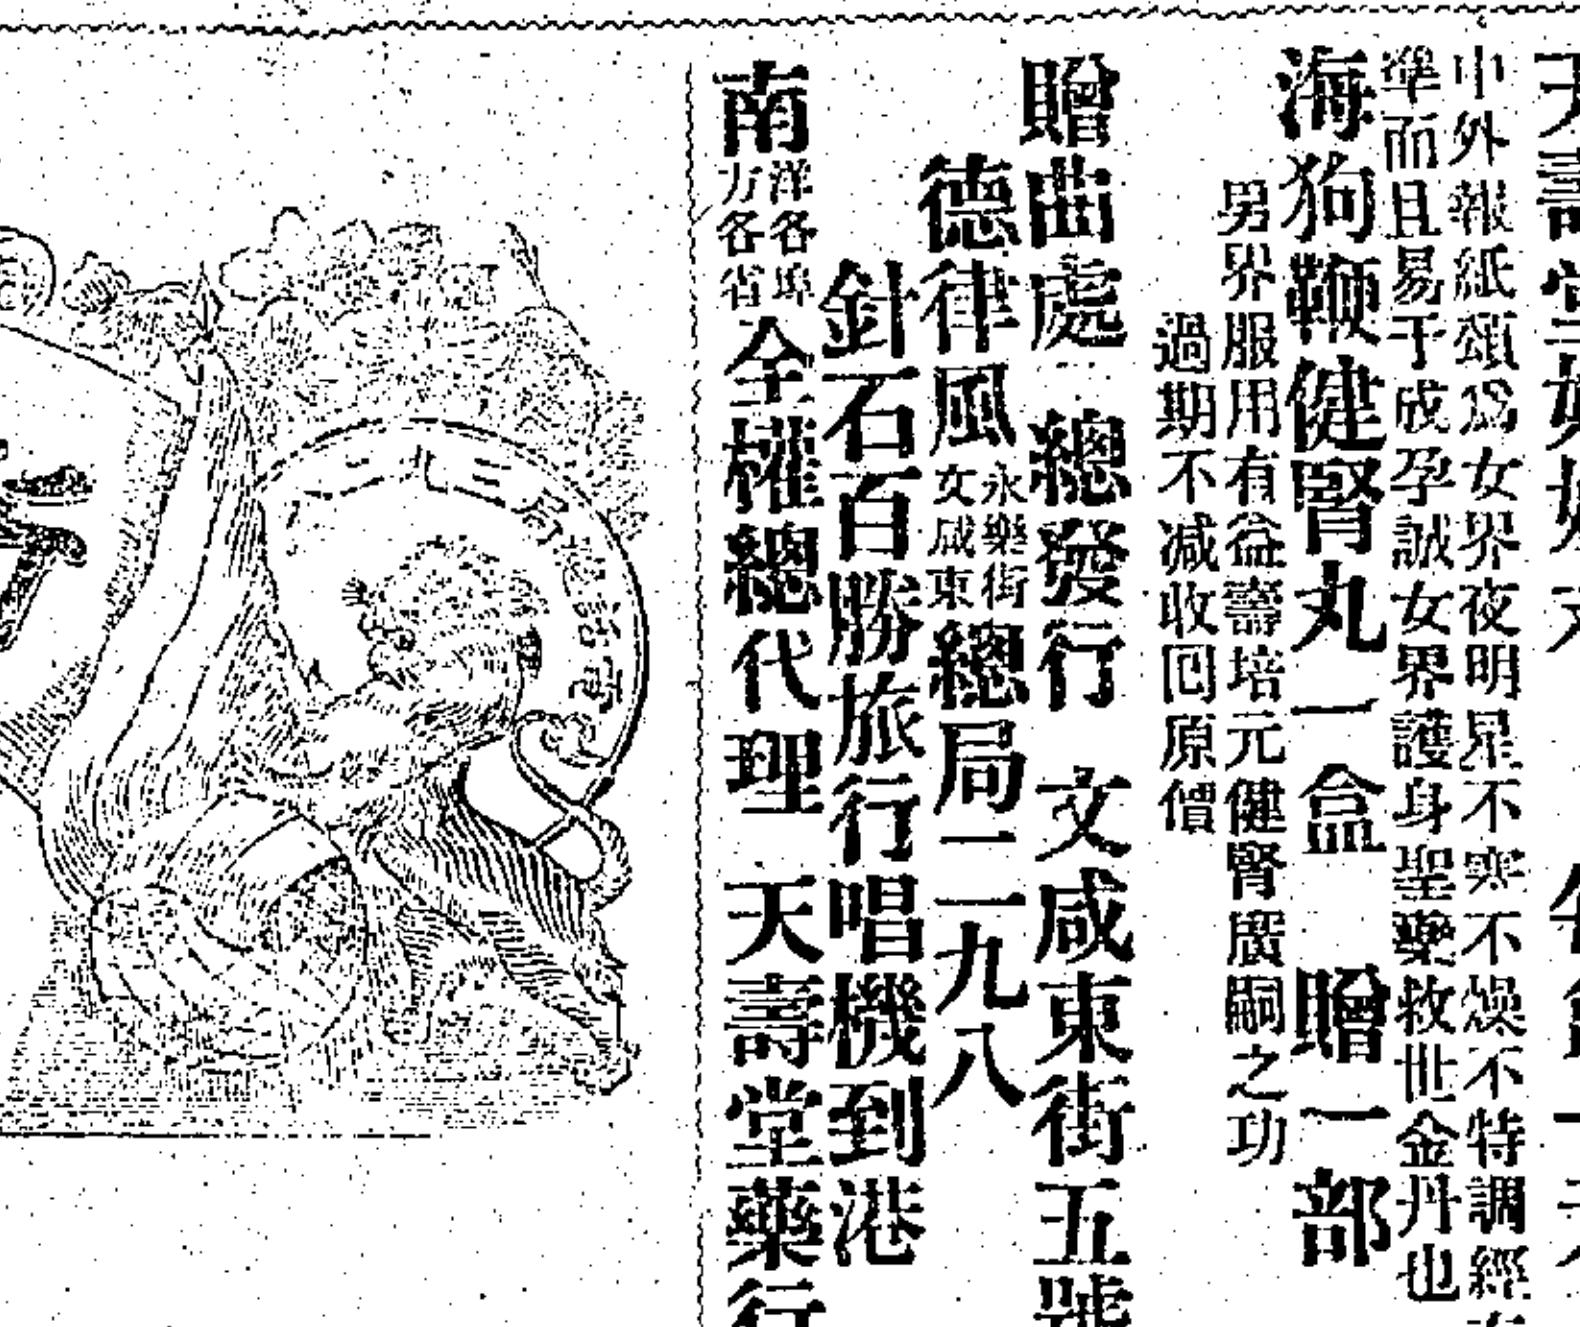 天壽堂
中外報紙頌為女界夜明星不寒不燥不特調經
準而且易于成孕誠女界護身聖藥救世金丹也
海狗鞭健腎丸一盒 贈一部
男界服用有益壽培元健腎廣嗣之功
過期不減收囘原價
贈曲處 總發行 文咸東街五號
德律風 永樂街 文咸東 總局二一九八
針石百勝旅行唱機到港
南 洋各埠 方各省 全權總代理 天壽堂藥行
電話總局二九三一